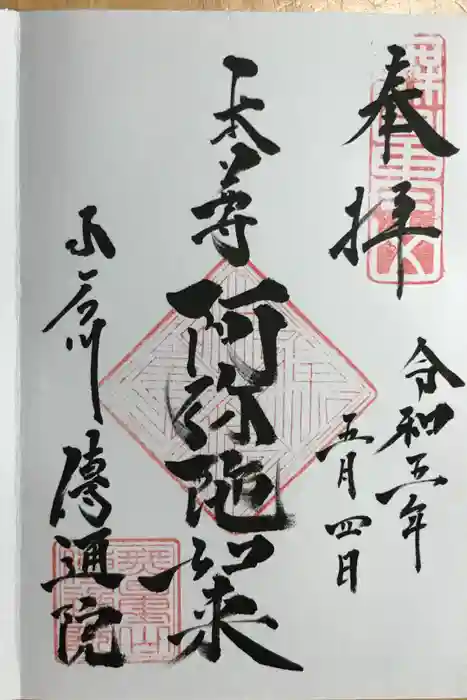 奉拝
令和三年
五月四日
本尊
阿弥陀如来
小石川
傳通院